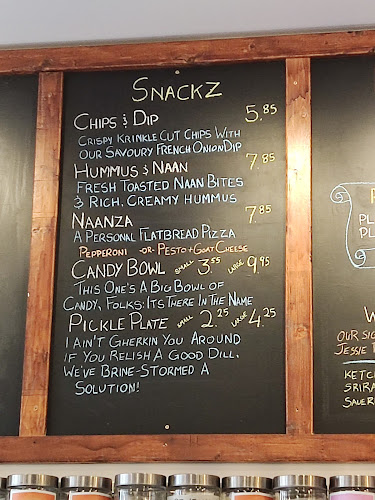 SNACKZ
CHIPS & DIP 5.85
CRISPY KRINKLE CUT CHIPS WITH
OUR SAVOURY FRENCH ONION DIP
HUMMUS & NAAN 7.85
FRESH TOASTED NAAN BITES
& RICH, CREAMY HUMMUS
NAANZA 7.85
A PERSONAL FLATBREAD PIZZA
PEPPERONI -OR- PESTO + GOAT CHEESE
CANDY BOWL SMALL 3.55 LARGE 9.95
THIS ONE'S A BIG BOWL OF
CANDY, FOLKS: ITS THERE IN THE NAME
PICKLE PLATE SMALL 2.25 LARGE 4.25
I AIN'T GHERKIN YOU AROUND
IF YOU RELISH A GOOD DILL.
WE'VE BRINE-STORMED A
SOLUTION!
OUR SIG
JESSIE
KETC
SRIRA
SAUER